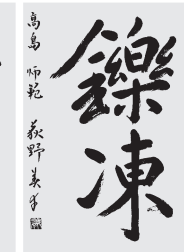 鑠凍
高島 師範 荻野美春